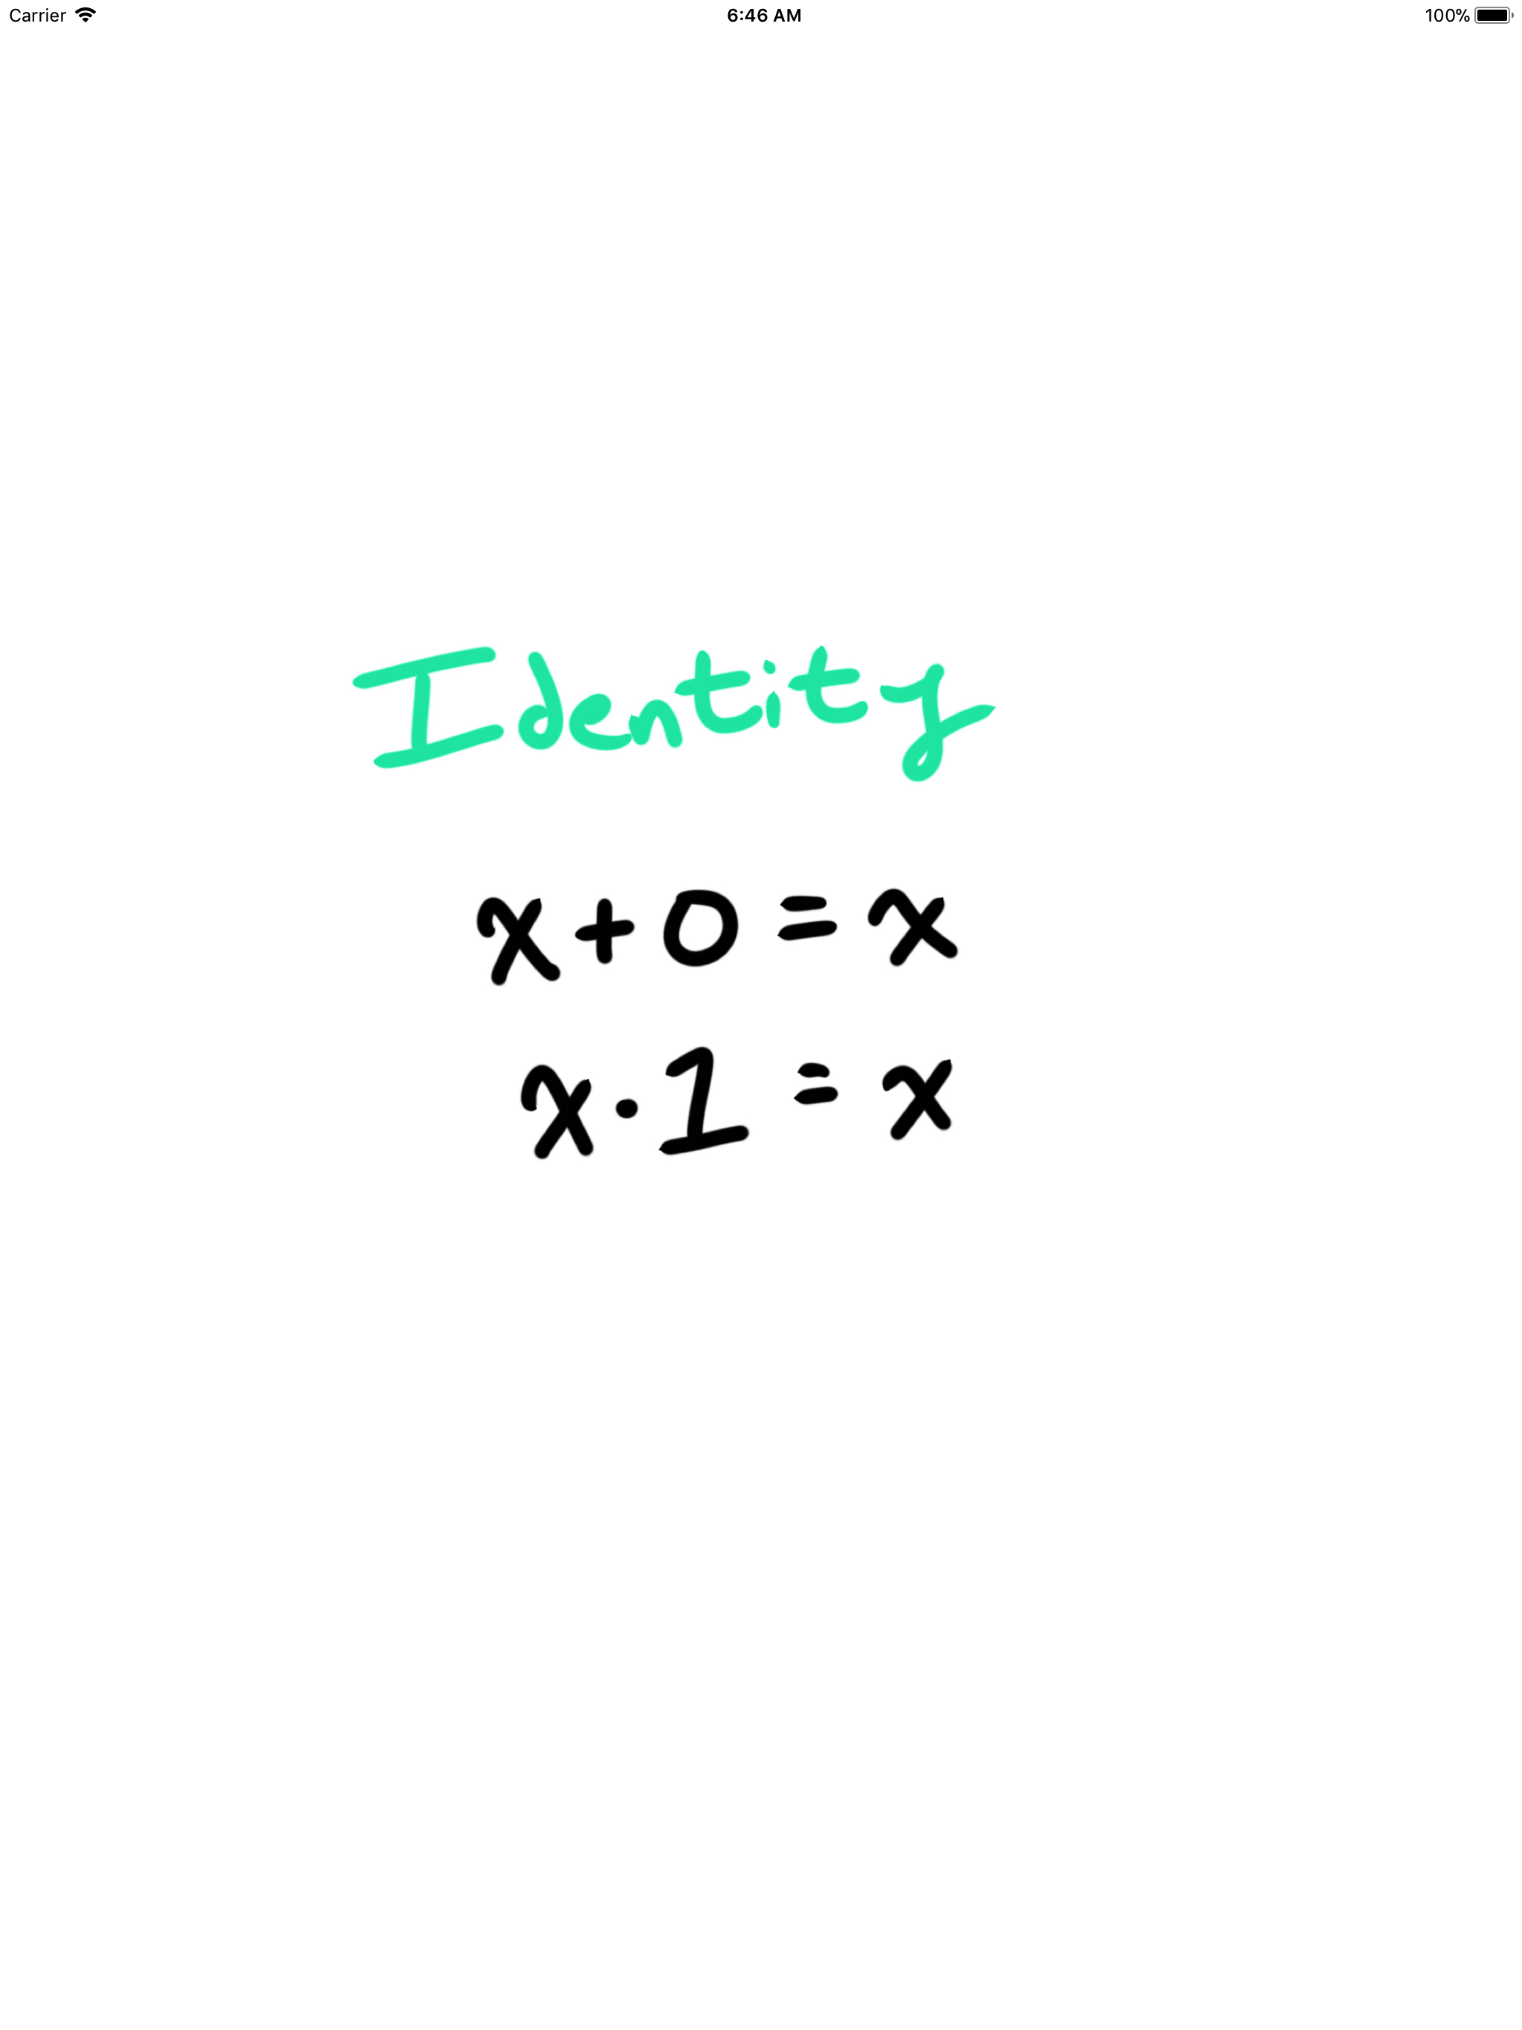 Carrier 6:46 AM 100%
Identity
x + 0 = x
x · 1 = x